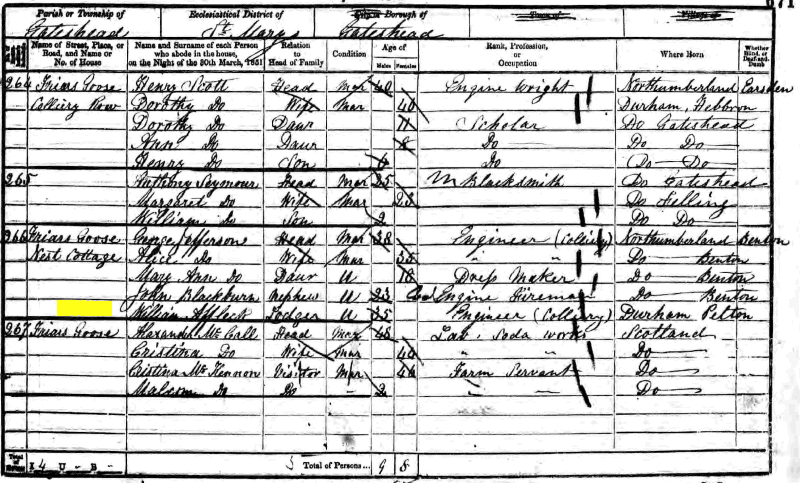 671
Parish or Township of Ecclesiastical District of City or Borough of Town of Village of
Gateshead St Marys Gateshead
Name of Street, Place, or Road, and Name or No. of House Name and Surname of each Person who abode in the house, on the Night of the 30th March, 1851 Relation to Head of Family Condition Age of Males Females Rank, Profession, or Occupation Where Born Whether Blind, or Deaf-and-Dumb
264 Friars Goose Henry Scott Head Mar 40 Engine Wright Northumberland Earsden
Colliery Row Dorothy Do Wife Mar 40 Durham, Hebbron
Dorothy Do Daur 11 Scholar Do Gateshead
Ann Do Daur 8 Do Do Do
Henry Do Son 6 Do Do Do
265 Anthony Seymour Head Mar 25 M Blacksmith Do Gateshead
Margaret Do Wife Mar 23 Do Felling
William Do Son 2 Do Do
266 Friars Goose George Jefferson Head Mar 38 Engineer (Colliery) Northumberland Benton
Nest Cottage Alice Do Wife Mar 35 " " Do Benton
Mary Ann Do Daur U 18 Dress Maker Do Benton
John Blackburn Nephew U 23 Engine Fireman Do Benton
William Affleck Lodger U 35 Engineer (Colliery) Durham Pelton
267 Friars Goose Alexander Mc Call Head Mar 48 Lab. Soda works Scotland
Cristina Do Wife Mar 44 " " Do
Cristina Mc Kennon Visitor Mar 46 Farm Servant Do
Malcom Do Do 2 Do
Total of Houses 4 U - B - Total of Persons... 9 8